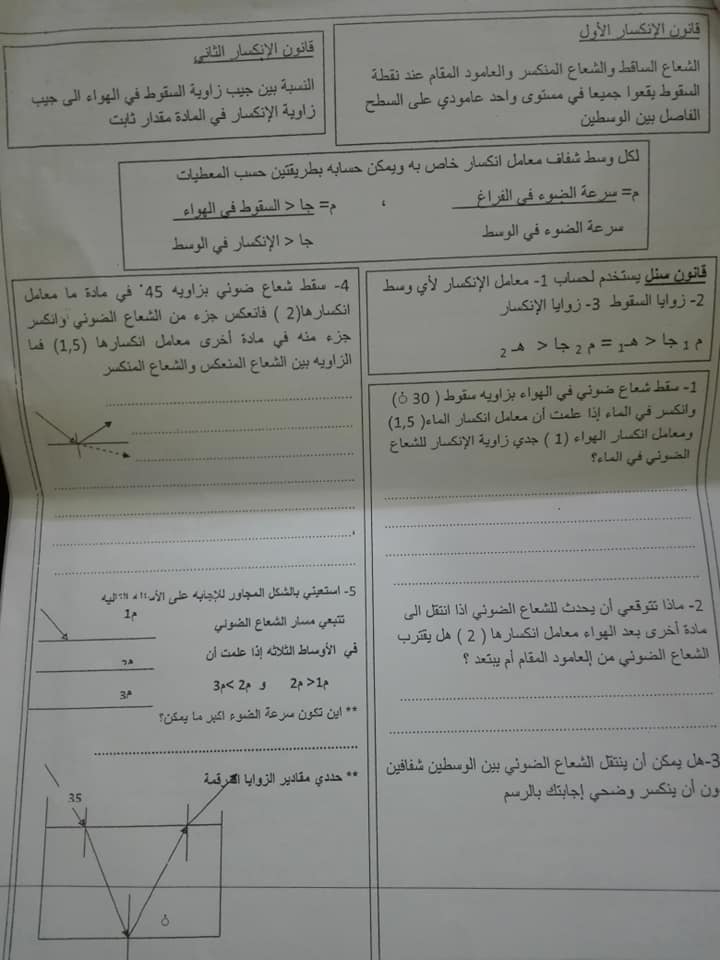 قانون الإنكسار الأول
الشعاع الساقط والشعاع المنكسر والعامود المقام عند نقطة
السقوط يقعوا جميعا في مستوى واحد عامودي على السطح
الفاصل بين الوسطين
قانون الإنكسار الثاني
النسبة بين جيب زاوية السقوط في الهواء الى جيب
زاوية الإنكسار في المادة مقدار ثابت
لكل وسط شفاف معامل انكسار خاص به ويمكن حسابه بطريقتين حسب المعطيات
م= سرعة الضوء في الفراغ ، م= جا < السقوط في الهواء
سرعة الضوء في الوسط جا < الإنكسار في الوسط
قانون سنل يستخدم لحساب 1- معامل الإنكسار لأي وسط
2- زوايا السقوط 3- زوايا الإنكسار
م 1 جا < هـ1 = م 2 جا < هـ 2
1- سقط شعاع ضوئي في الهواء بزاويه سقوط ( 30 ْ)
وانكسر في الماء إذا علمت أن معامل انكسار الماء( 1,5)
ومعامل انكسار الهواء (1 ) جدي زاوية الإنكسار للشعاع
الضوئي في الماء؟
2- ماذا تتوقعي أن يحدث للشعاع الضوئي اذا انتقل الى
مادة أخرى بعد الهواء معامل انكسارها ( 2 ) هل يقترب
الشعاع الضوئي من العامود المقام أم يبتعد ؟
3-هل يمكن أن ينتقل الشعاع الضوئي بين الوسطين شفافين
ون أن ينكسر وضحي إجابتك بالرسم
4- سقط شعاع ضوئي بزاويه 45 ْ في مادة ما معامل
انكسارها(2 ) فانعكس جزء من الشعاع الضوئي وانكسر
جزء منه في مادة أخرى معامل انكسارها (1,5) فما
الزاويه بين الشعاع المنعكس والشعاع المنكسر
5- استعيني بالشكل المجاور للإجابه على الأسئلة التاليه
م1
تتبعي مسار الشعاع الضوئي
م2
في الأوساط الثلاثه إذا علمت أن
م3
م1>م2 و م2 <م3
** اين تكون سرعة الضوء اكبر ما يمكن؟
** حددي مقادير الزوايا المرقمة
35